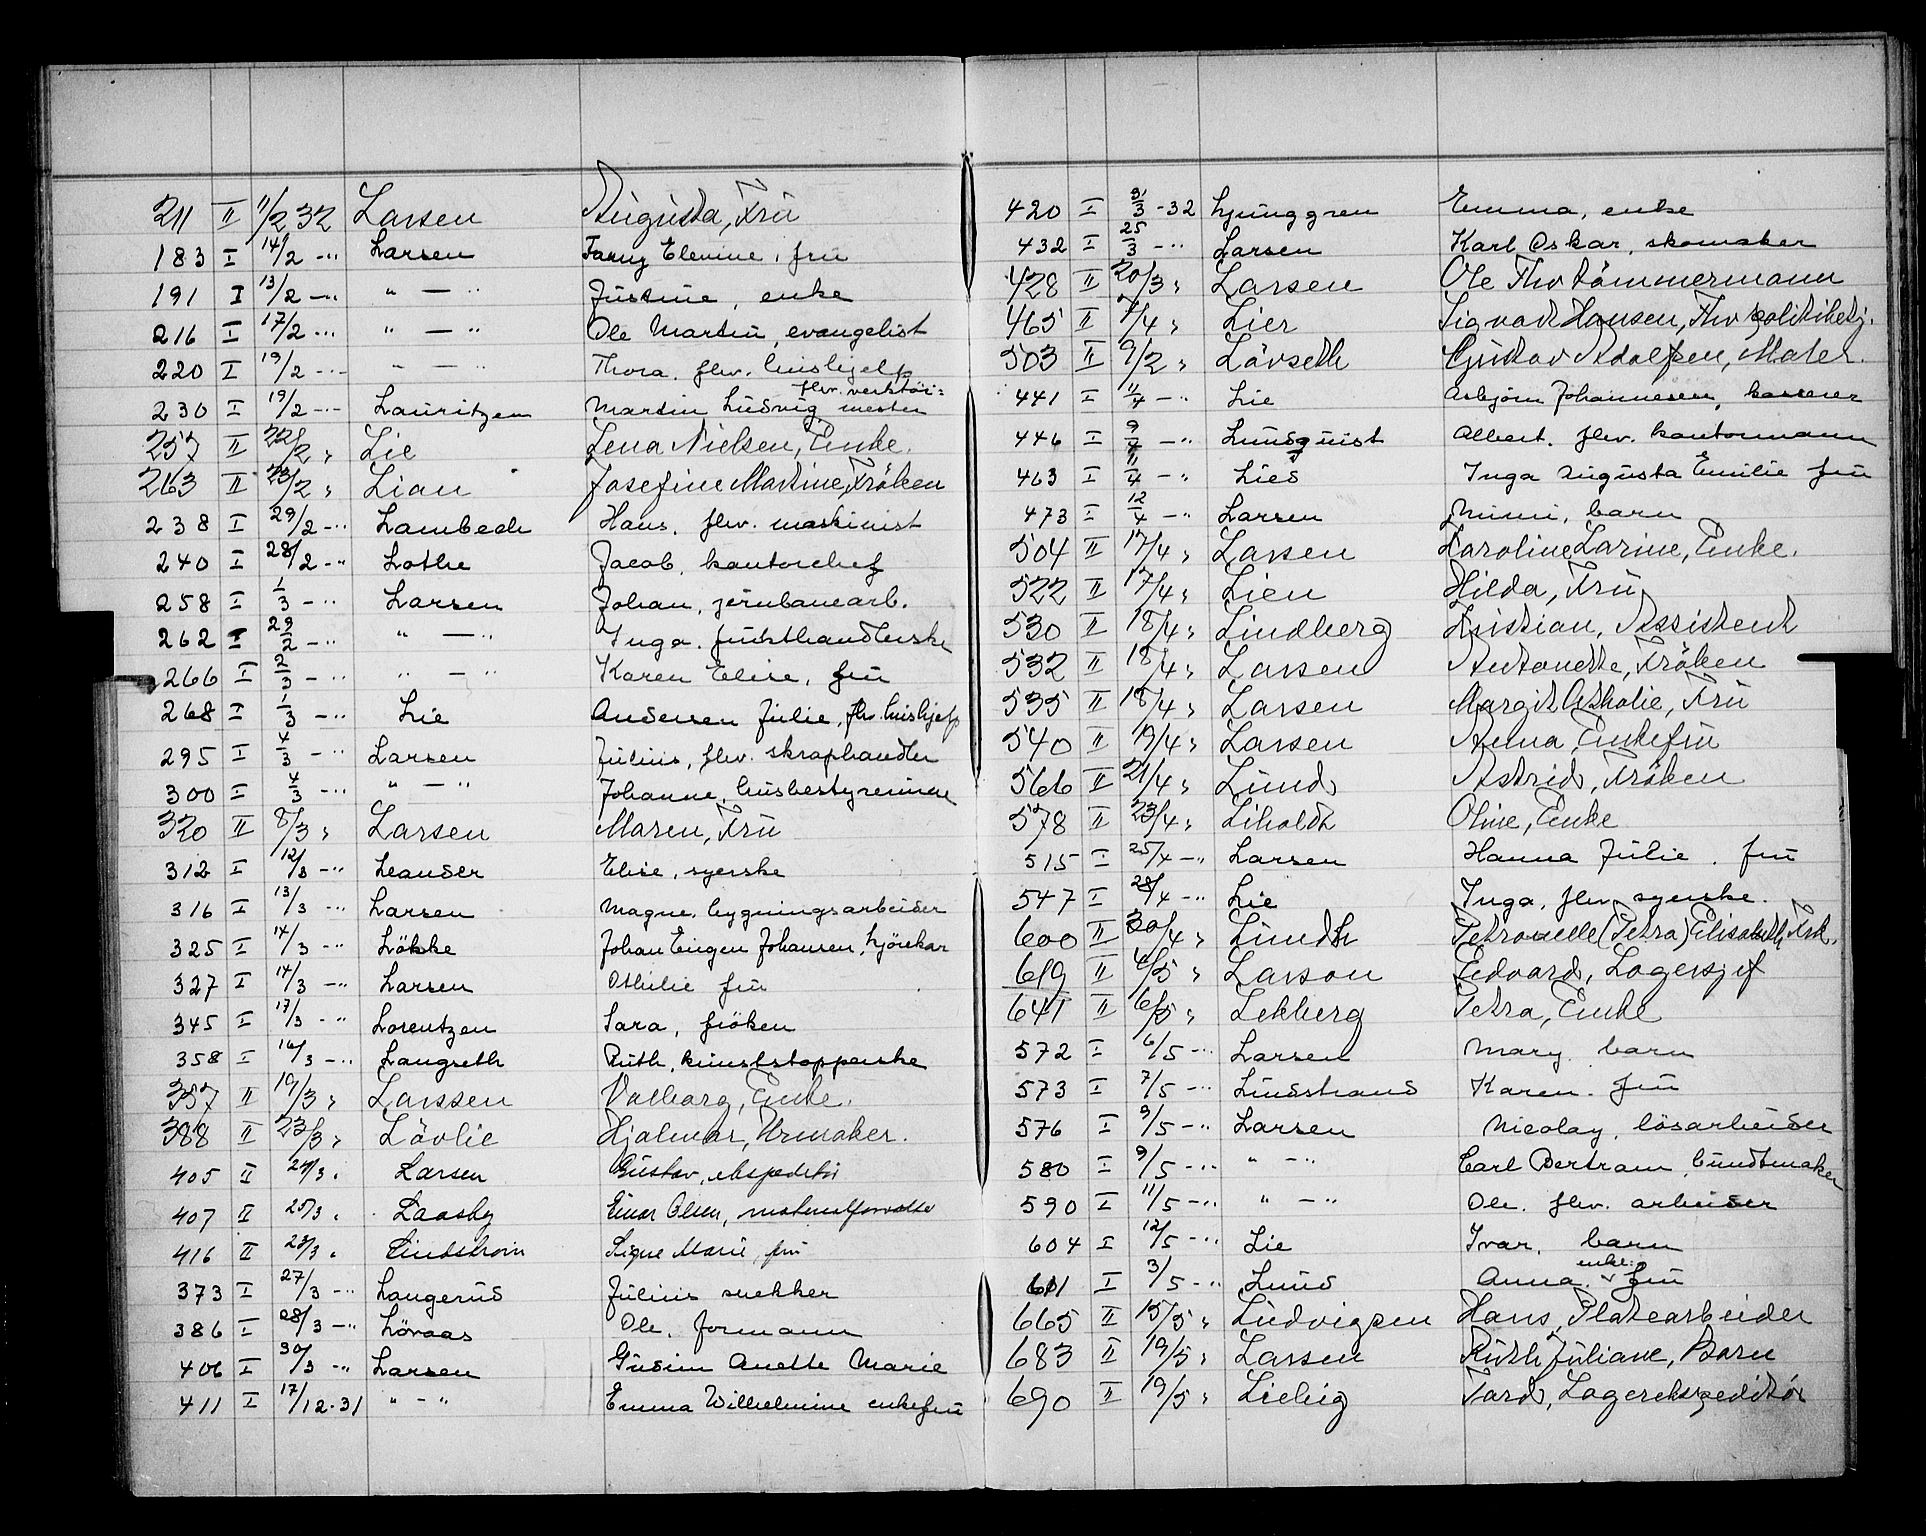 211 II 11/2 32 Larsen Augusta, Frü
183 I 14/2 -"- Larsen Fanny Elevine, frü
191 I 13/2 -"- " — " Jüstine, enke
216 I 17/2 -"- " — " Ole Martin, evangelist
220 I 19/2 -"- " — " Thora. fhv. hüshjelp
fhv. verktöi-
230 I 19/2 -"- Lauritzen Martin Ludvig mester
257 II 22/2 " Lie Lena Nielsen, Enke.
263 II 23/2 " Lian Josefine Martine, Fröken
238 I 29/2 -"- Lambech Hans. fhv. maskinist
240 I 28/2 -"- Lothe Jacob, kontorchef
258 I 1/3 -"- Larsen Johan, jernbanearb.
262 I 29/2 -"- " — " Inga. frükthandlerske
266 I 2/3 -"- " — " Karen Elise, frü
268 I 1/3 -"- Lie Andersen Jülie, fhv. hüshjelp
295 I 4/3 -"- Larsen Jülius, fhv. skraphandler
300 I 4/3 -"- " — " Johanne, hüsbestyrerinne
320 II 8/3 " Larsen Maren, Frü
312 I 12/3 -"- Leander Elise, syerske
316 I 13/3 -"- Larsen Magne. bygningsarbeider
325 I 14/3 -"- Lökke Johan Eugen Johansen, kjörekar
327 I 14/3 -"- Larsen Othilie frü
345 I 17/3 -"- Lorentzen Sara, fröken
358 I 16/3 -"- Langseth Rüth, künststopperske
357 II 19/3 " Larssen Valborg, Enke.
388 II 23/3 " Lövlie Hjalmar, Urmaker.
405 II 24/3 " Larsen Güstav, ekspeditör
407 II 25/3 " Laasby Einar Olsen, materialforvalter
416 II 23/3 " Lindström Signe Marie, frü
373 I 27/3 -"- Langerüd Jülius snekker
386 I 28/3 -"- Löraas Ole. formann
406 I 30/3 -"- Larsen Güsim Anette Marie
411 I 17/12-31 " - " Emma Wilhelmine enkefrü
420 I 9/3 -32 Ljunggren Emma, enke
432 I 25/3 -"- Larsen Karl Oskar, skomaker
428 II 20/3 " Larsen Ole Fhv tömmermann
465 II 7/4 " Lier Sigvart Hansen, Fhv politibetj.
503 II 9/2 " Lövseth Güstav Adolfsen, Maler.
441 I 11/4 -"- Lie Asbjörn Johannesen, kasserer
446 I 9/4 -"- Lundquist Albert. fhv. kontormann
463 I 11/4 -"- Lied Inga Augusta Emilie frü
473 I 12/4 -"- Larsen Mimi, barn
504 II 17/4 " Larsen Karoline Larine, Enke.
522 II 17/4 " Lien Hilda, Frü
530 II 18/4 " Lindberg Kristian, Assistent
532 II 18/4 " Larsen Antonette, Fröken
535 II 18/4 " Larsen Margit Athalie, Frü
540 II 19/4 " Larsen Anna, Enkefrü
566 II 21/4 " Lund Astrid, Fröken
578 II 23/4 " Liholdt Oline, Enke
515 I 25/4 -"- Larsen Hanna Jülie. frü
547 I 28/4 -"- Lie Inga, fhv. syerske.
600 II 30/4 " Lundh Petronelle (Petra) Elisabeth, Frk.
619 II 4/5 " Larson Edvard, Lagersjef
641 II 6/5 " Lekberg Petra, Enke
572 I 6/5 -"- Larsen Mary. barn
573 I 7/5 -"- Lundstrand Karen. frü
576 I 9/5 -"- Larsen Nicolay, lösarbeider
580 I 9/5 -"- " - " Carl Bertram, bundtmaker
590 I 11/5 -"- " - " Ole. fhv. arbeider
604 I 12/5 -"- Lie Ivar, barn
enke.
611 I 3/5 -"- Lund Anna. frü
665 II 15/5 " Lüdvigsen Hans, Platearbeider
683 II 19/5 " Larsen Rüth Jüliane, Barn
690 II 19/5 " Liebig Fard, Lagerekspeditör